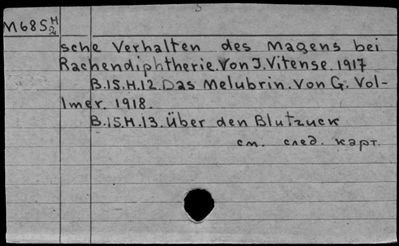 M685 H/2
sche Verhalten des Magens bei
Rachendiphtherie. Von J. Vitense. 1917
B.15.H.12. Das Melubrin. Von G. Vol-
lmer. 1918.
B.15.H.13. Über den Blutzuck
см. след. карт.